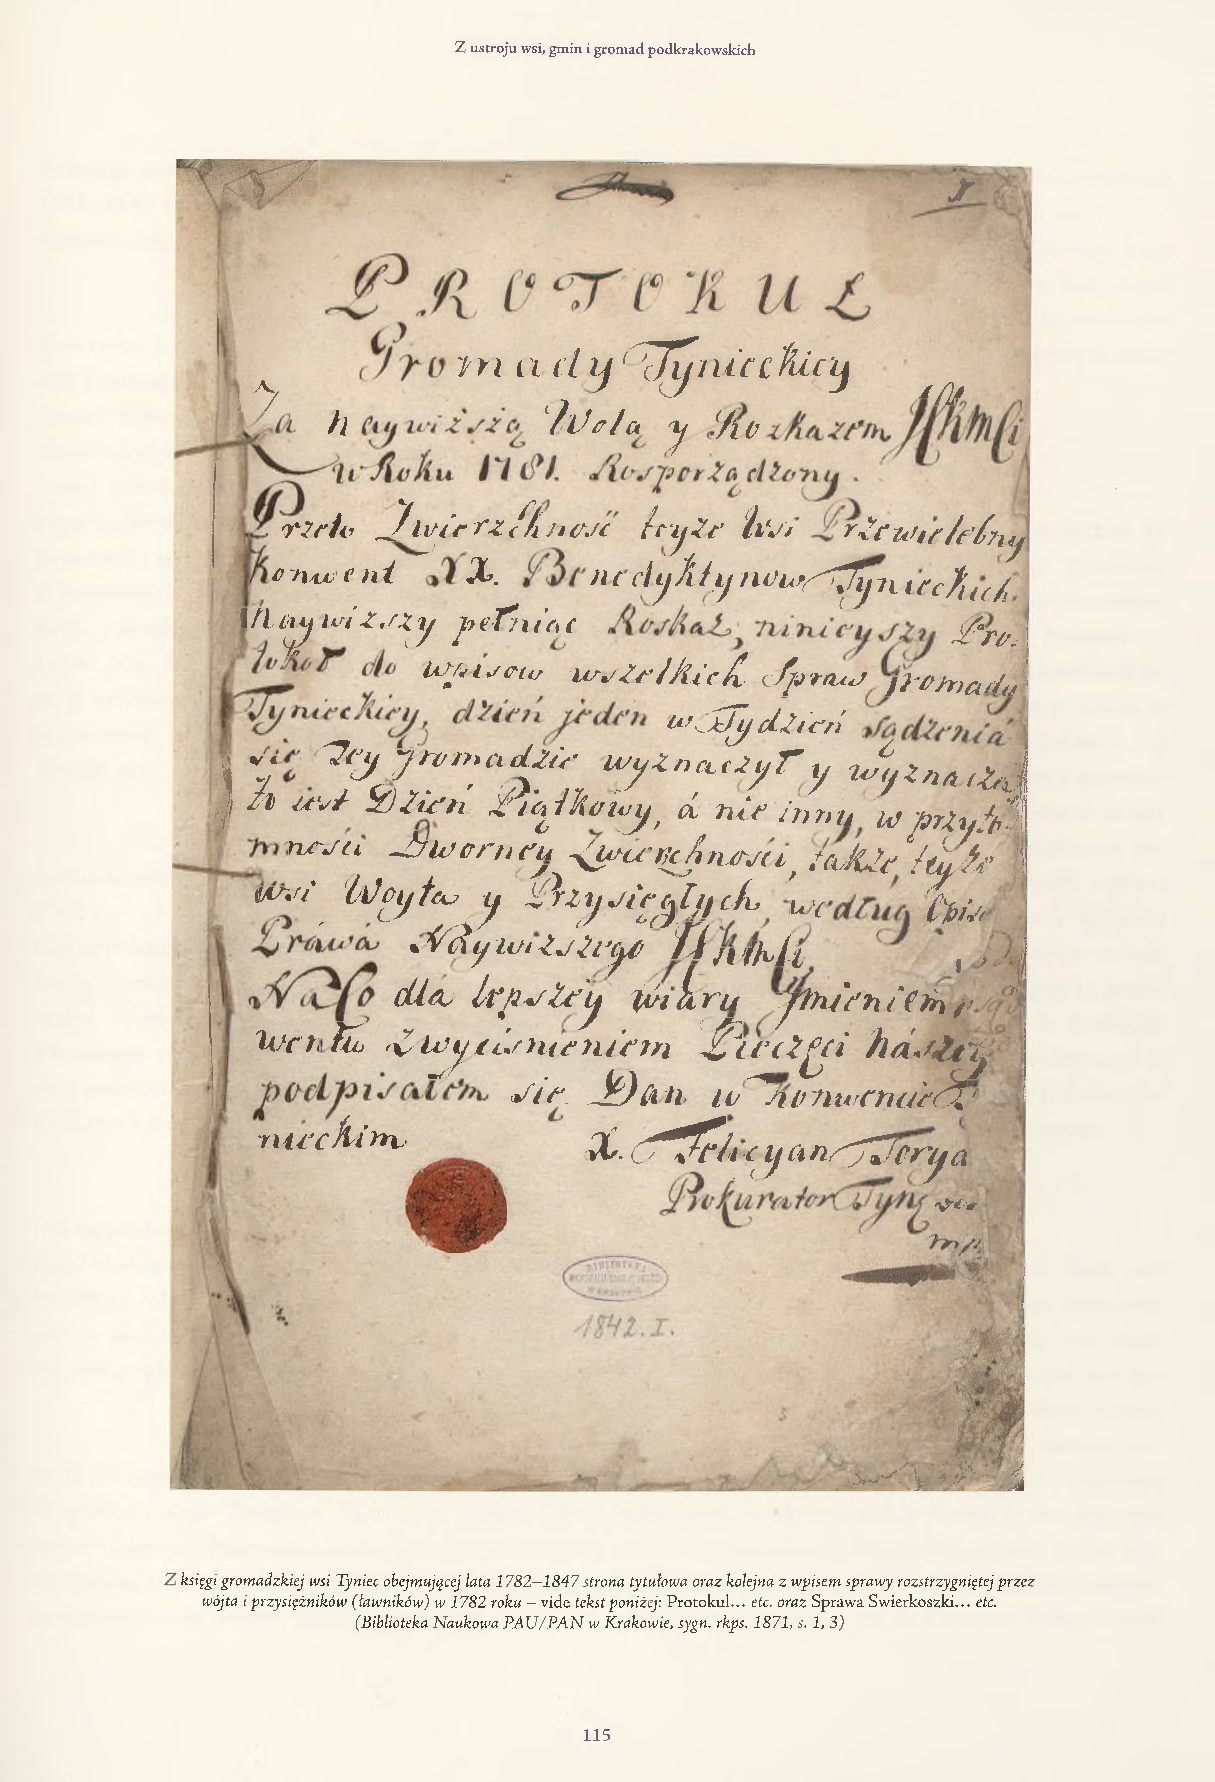 Z ustroju wsi, gmin i gromad podkrakowskich
PROTOKUŁ
Gromady Tynieckiey
Za naywiższą Wolą y Rozkazem JCKMCi
w Roku 1781. Rosporządzony.
Przeto Zwierzchność teyże Wsi Przewielebny
Konwent XX. Benedyktynow Tynieckich
Naywiższy pełniąc Roskaz, ninieyszy Pro-
tokoł do wpisow wszelkich Spraw Gromady
Tynieckiey, dzień jeden w Tydzień sądzenia
się Tey Gromadzie wyznaczył y wyznacza
to iest Dzień Piątkowy, á nie inny, w przyto-
mności Dworney Zwierzchności, także, teyże
wsi Woyta y Przysięgłych, według Opisu
Práwa Naywiższego JCKMCi
Na Co dla lepszey wiary Jmieniem
wentu z wyciśnieniem Pieczęci nászey
podpisałem się. Dan w Konwencie Ty
nieckim X. Felicyan Torya
Prokurator
mp
BIBLIOTEKA
W KRAKOWIE
1842. I.
Z księgi gromadzkiej wsi Tyniec obejmującej lata 1782–1847 strona tytułowa oraz kolejna z wpisem sprawy rozstrzygniętej przez
wójta i przysiężników (ławników) w 1782 roku – vide tekst poniżej: Protokul… etc. oraz Sprawa Swierkoszki… etc.
(Biblioteka Naukowa PAU/PAN w Krakowie, sygn. rkps. 1871, s. 1, 3)
115